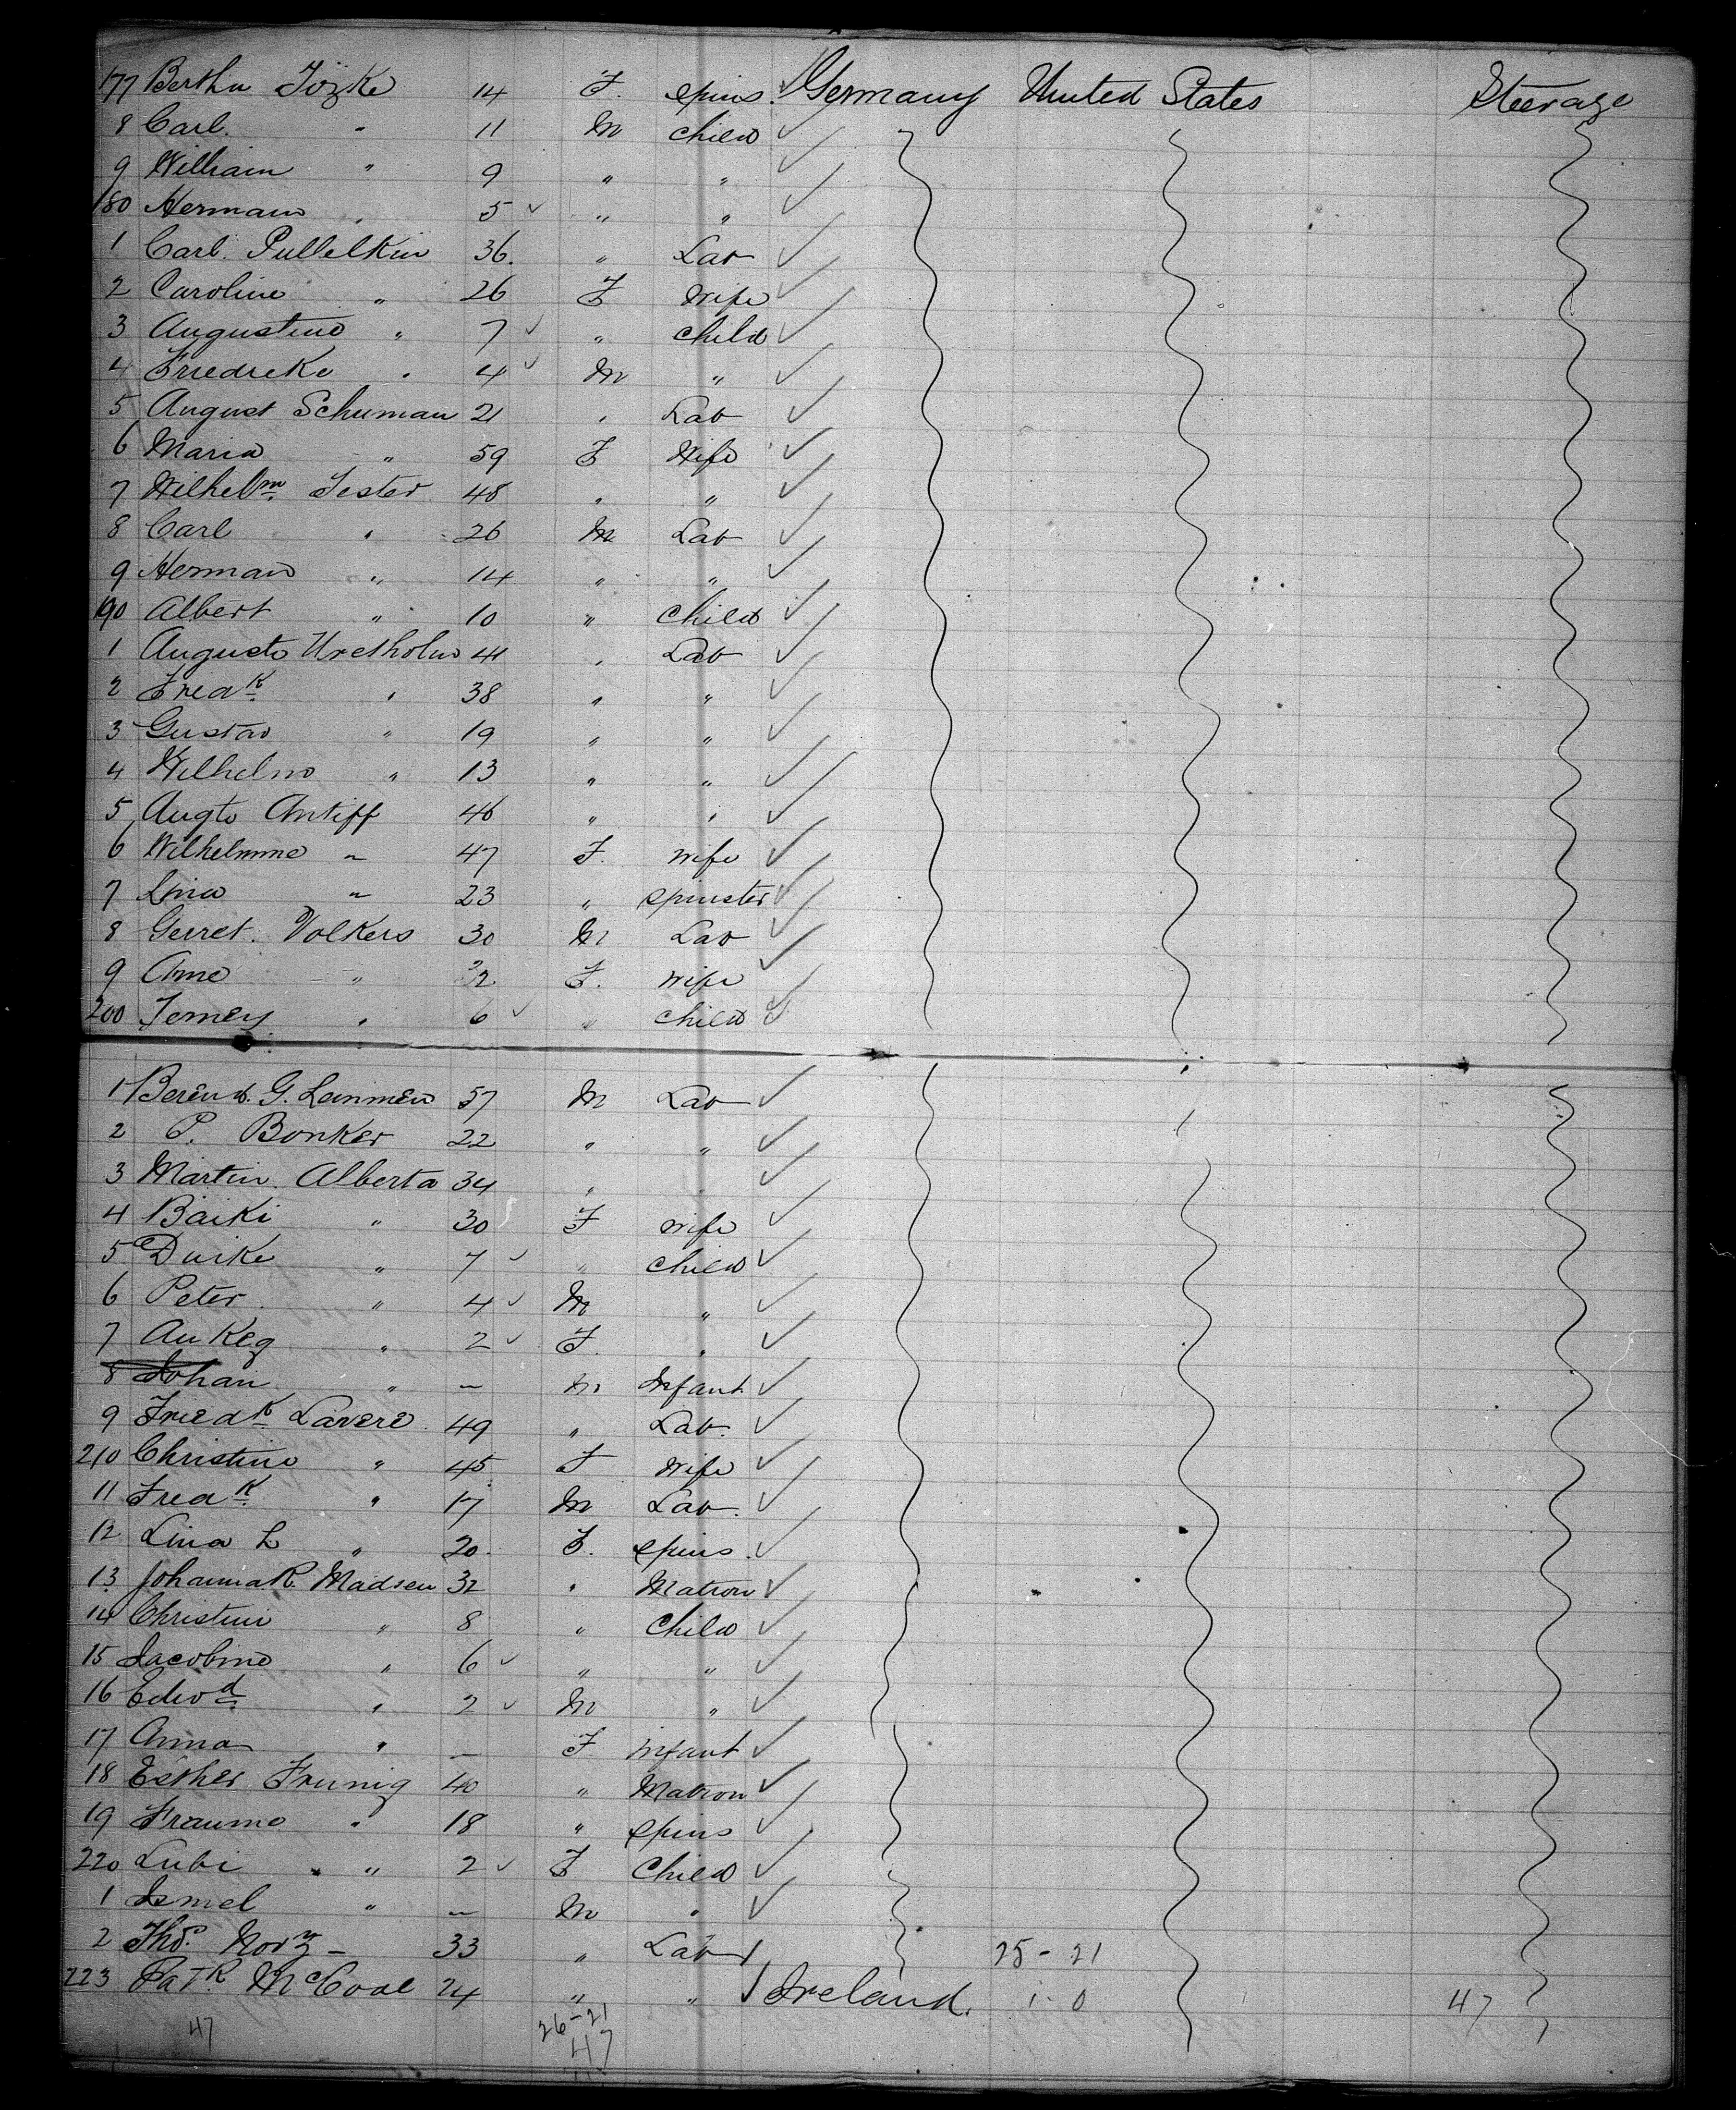 177 Bertha Jözke 14 F. spins. Germany United States Steerage
8 Carl " 11 M child
9 William " 9 " "
180 Herman " 5 " "
1 Carl. Pullelkin 36. " Lab
2 Caroline " 26 F Wife
3 Augustine " 7 " child
4 Friedreke " 4 M "
5 August Schuman 21 " Lab
6 Maria " 59 F Wife
7 Wilhelm Jester 48 " "
8 Carl " 26 M Lab
9 Herman " 14 " "
190 Albert " 10 " Child
1 Auguste 41 " Lab
2 Fredk " 38 " "
3 Gustav " 19 " "
4 Wilhelm " 13 " "
5 Augto Antiff 46 " "
6 Wilhelmine " 47 F. wife
7 Lina " 23 " spinster
8 Gerret. Volkers 30 M Lab
9 Ame " 32 F. wife
200 Jemey " 6 " child
1 Berend. G. Lammen 57 M Lab
2 P. Bonker 22 " "
3 Martin. Alberta 34 " "
4 Baiki " 30 F wife
5 Duike " 7 " child
6 Peter " 4 M "
7 Aukeg " 2 F. "
8 Johan " — M Infant
9 Friedk Lavere 49 " Lab.
210 Christine " 45 F Wife
11 Fredk " 17 M Lab.
12 Lina L " 20. F. spins.
13 Johanna R. Madsen 32 " Matron
14 Christini " 8 " Child
15 Jacobine " 6 " "
16 Edwd " 2 M "
17 Anna " — F infant
18 Esther Frunig 40 " Matron
19 Fraume " 18 " spins
220 Lubi " 2 F Child
1 Ismel " — M "
2 Thos. — 33 " Lab 25-21
223 Patk McCoal 24 " " Ireland. 1-0 47
47 26-21
47